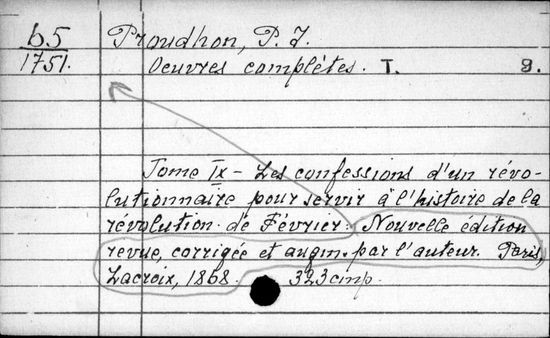 b5 Proudhon, P. J.
1751. Oeuvres complètes. T. 9.
Tome IX - Les confessions d'un révo-
lutionnaire pour servir à l'histoire de la
révolution de Février. Nouvelle édition
revue, corrigée et augm. par l'auteur. Paris,
Lacroix, 1868. 323 стр.